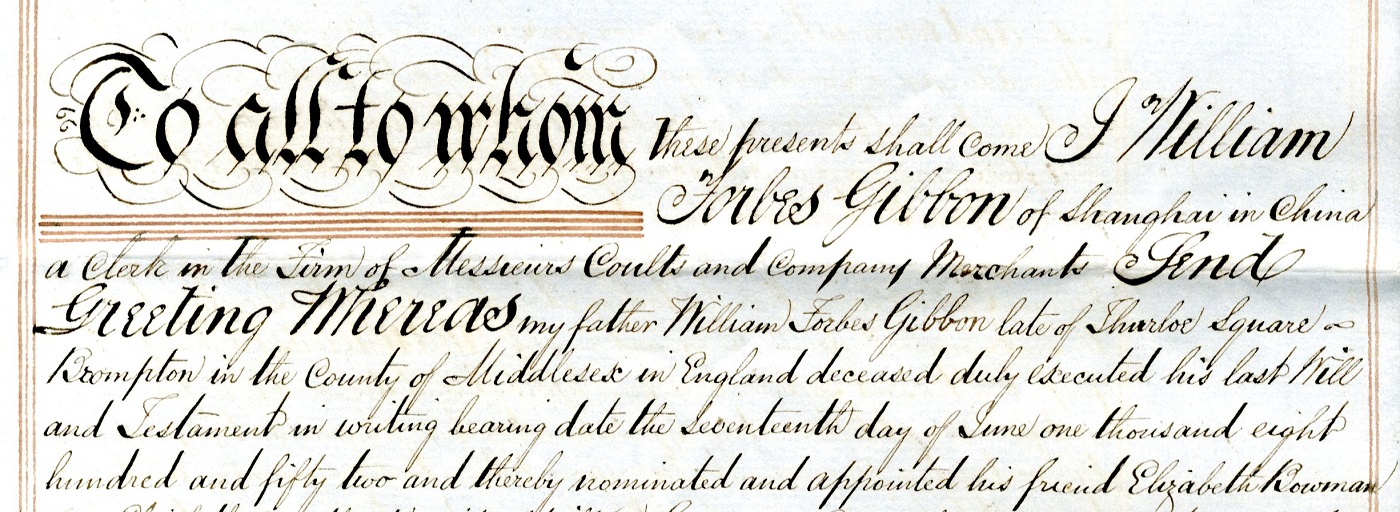 To all to whom these presents shall come I William
Forbes Gibbon of Shanghai in China
a Clerk in the Firm of Messieurs Coults and Company Merchants Send
Greeting Whereas my father William Forbes Gibbon late of Thurloe Square
Brompton in the County of Middlesex in England deceased duly executed his last Will
and Testament in writing bearing date the seventeenth day of June one thousand eight
hundred and fifty two and thereby nominated and appointed his friend Elizabeth Bowman